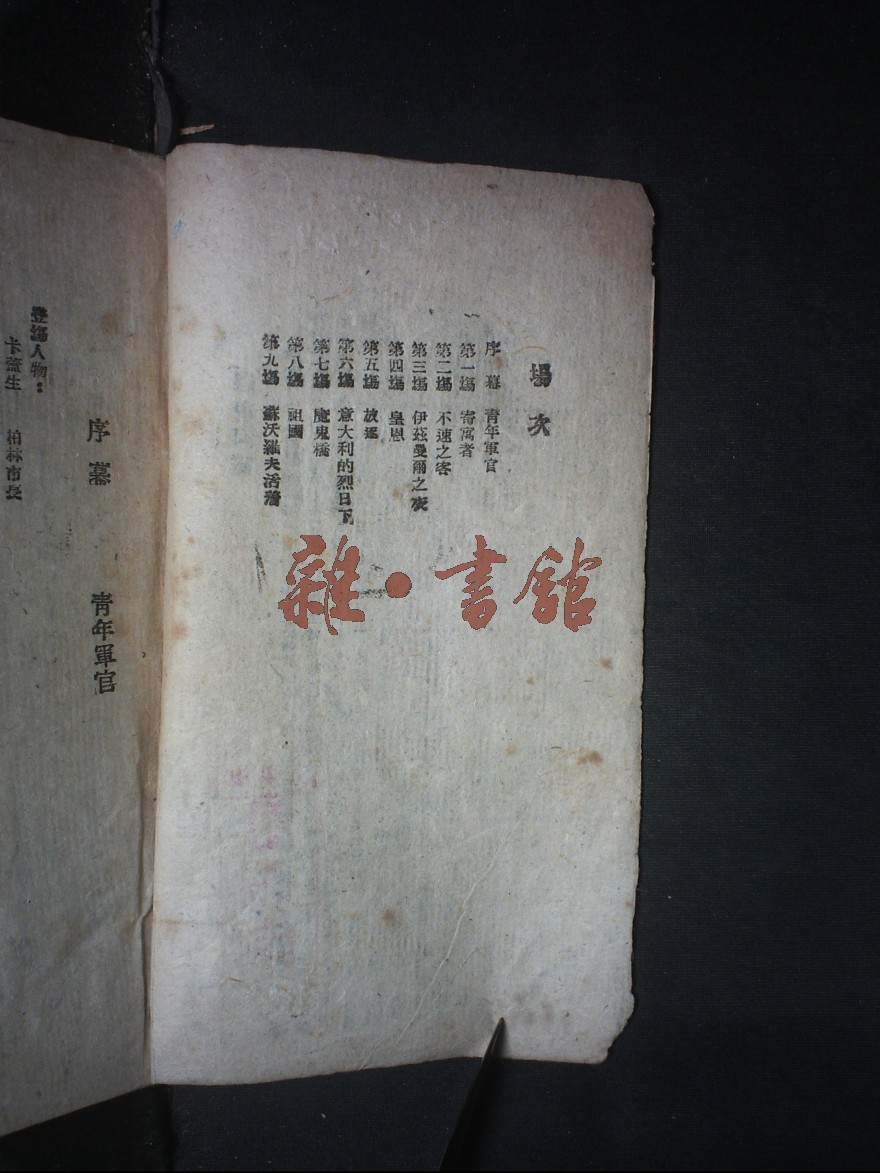 場次
序幕 青年軍官
第一場 寄寓者
第二場 不速之客
第三場 伊茲曼爾之夜
第四場 皇恩
第五場 放逐
第六場 意大利的烈日下
第七場 魔鬼橋
第八場 祖國
第九場 蘇沃羅夫活着
雜·書館
序幕 青年軍官
登場人物：
卡薩生 柏林市長